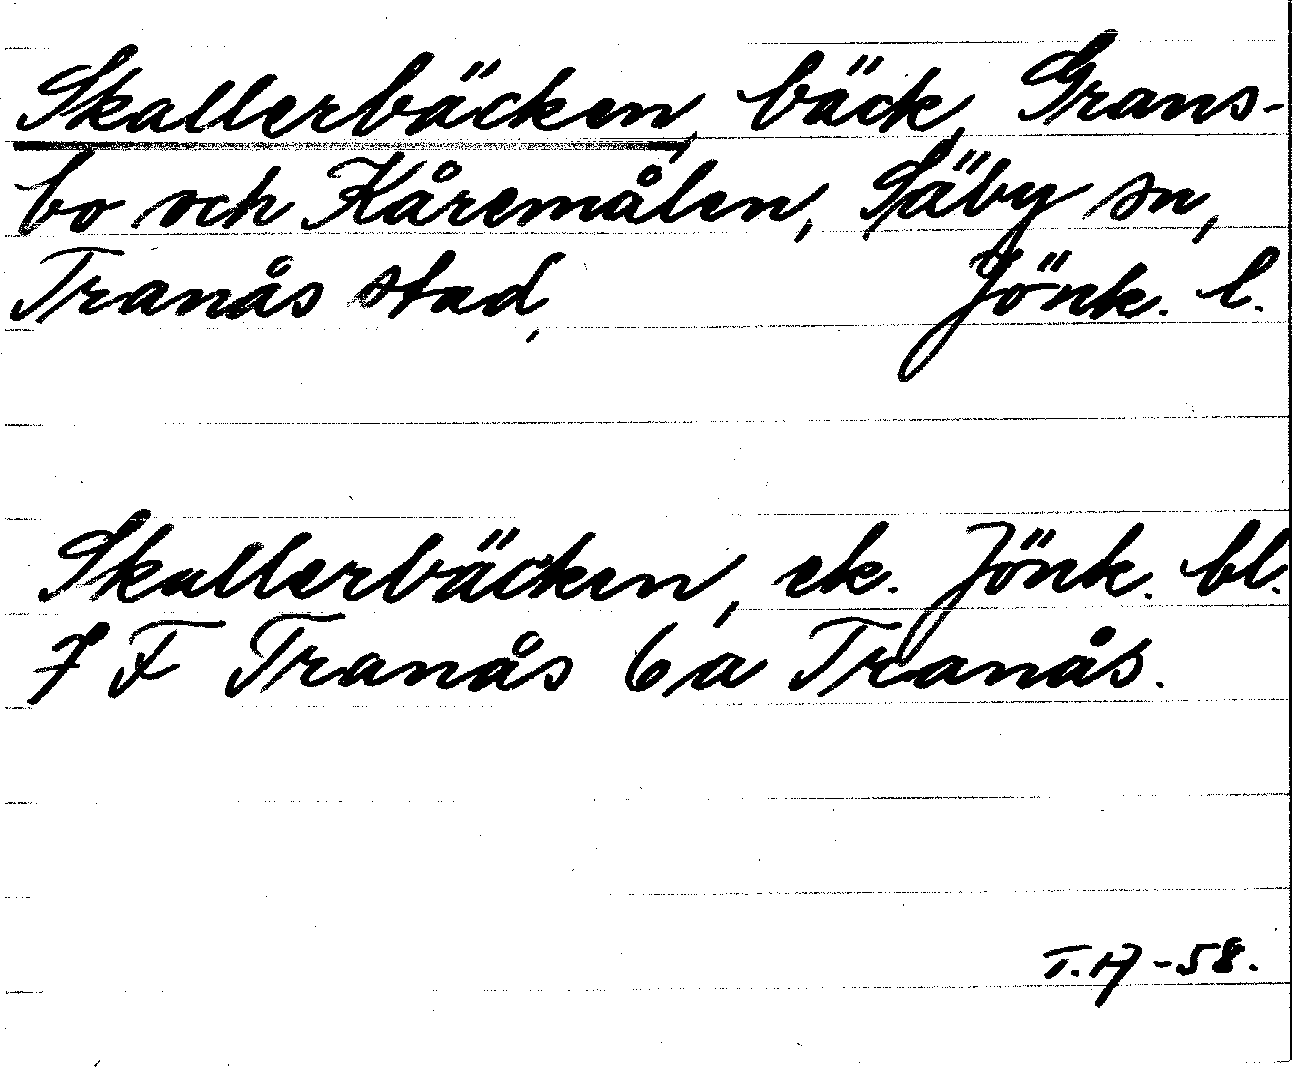 Skallerbäcken, bäck, Grans-
bo och Kåremålen, Säby sn,
Tranås stad, Jönk. l.
Skallerbäcken, ek. Jönk. bl.
7 F Tranås 6 a Tranås.
T.H -58.